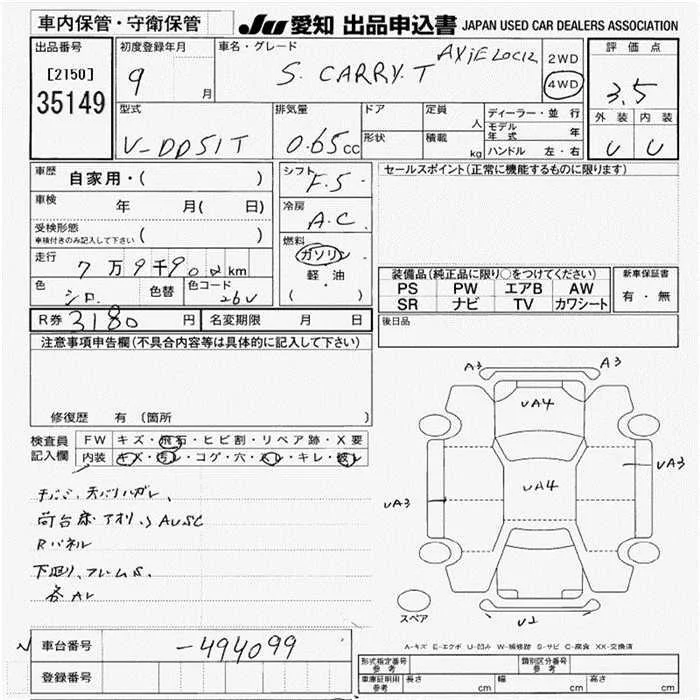 車内保管・守衛保管
JU 愛知 出品申込書 JAPAN USED CAR DEALERS ASSOCIATION
出品番号
[2150]
35149
初度登録年月
9 月
車名・グレード
S. CARRY. T
2WD
4WD
評価点
3.5
外装 内装
U U
型式
V-DD51T
排気量
0.65 cc
ドア
形状
定員 人
積載 kg
ディーラー・並行
モデル年式 年
ハンドル 左・右
車歴 自家用・( )
車検 年 月( 日)
受検形態
車検付きのみ記入して下さい ( )
走行 7万9千90 km
色 シロ 色替 色コード 26U
シフト
F.5
冷房
A.C
燃料
ガソリン
軽油
( ・ )
セールスポイント(正常に機能するものに限ります)
装備品(純正品に限り○をつけてください)
PS PW エアB AW
SR ナビ TV カワシート
新車保証書
有・無
後日品
R券 3180 円 名変期限 月 日
注意事項申告欄(不具合内容等は具体的に記入して下さい)
修復歴 有(箇所 )
検査員記入欄
FW キズ・飛石・ヒビ割・リペア跡・X要
内装 キズ・汚レ・コゲ・穴・スレ・キレ・破レ
荷台床アオリ
Rパネル
下廻り、フレームS.
各AL
A3 A3
UA4
UA3
UA4
UA3
U2
スペア
A-キズ E-エクボ U-凹み W-補修跡 S-サビ C-腐食 XX-交換済
車台番号 -494099
登録番号
形式指定番号 参考
類別区分番号 参考
車庫証明用 参考 長さ cm 幅 cm 高さ cm